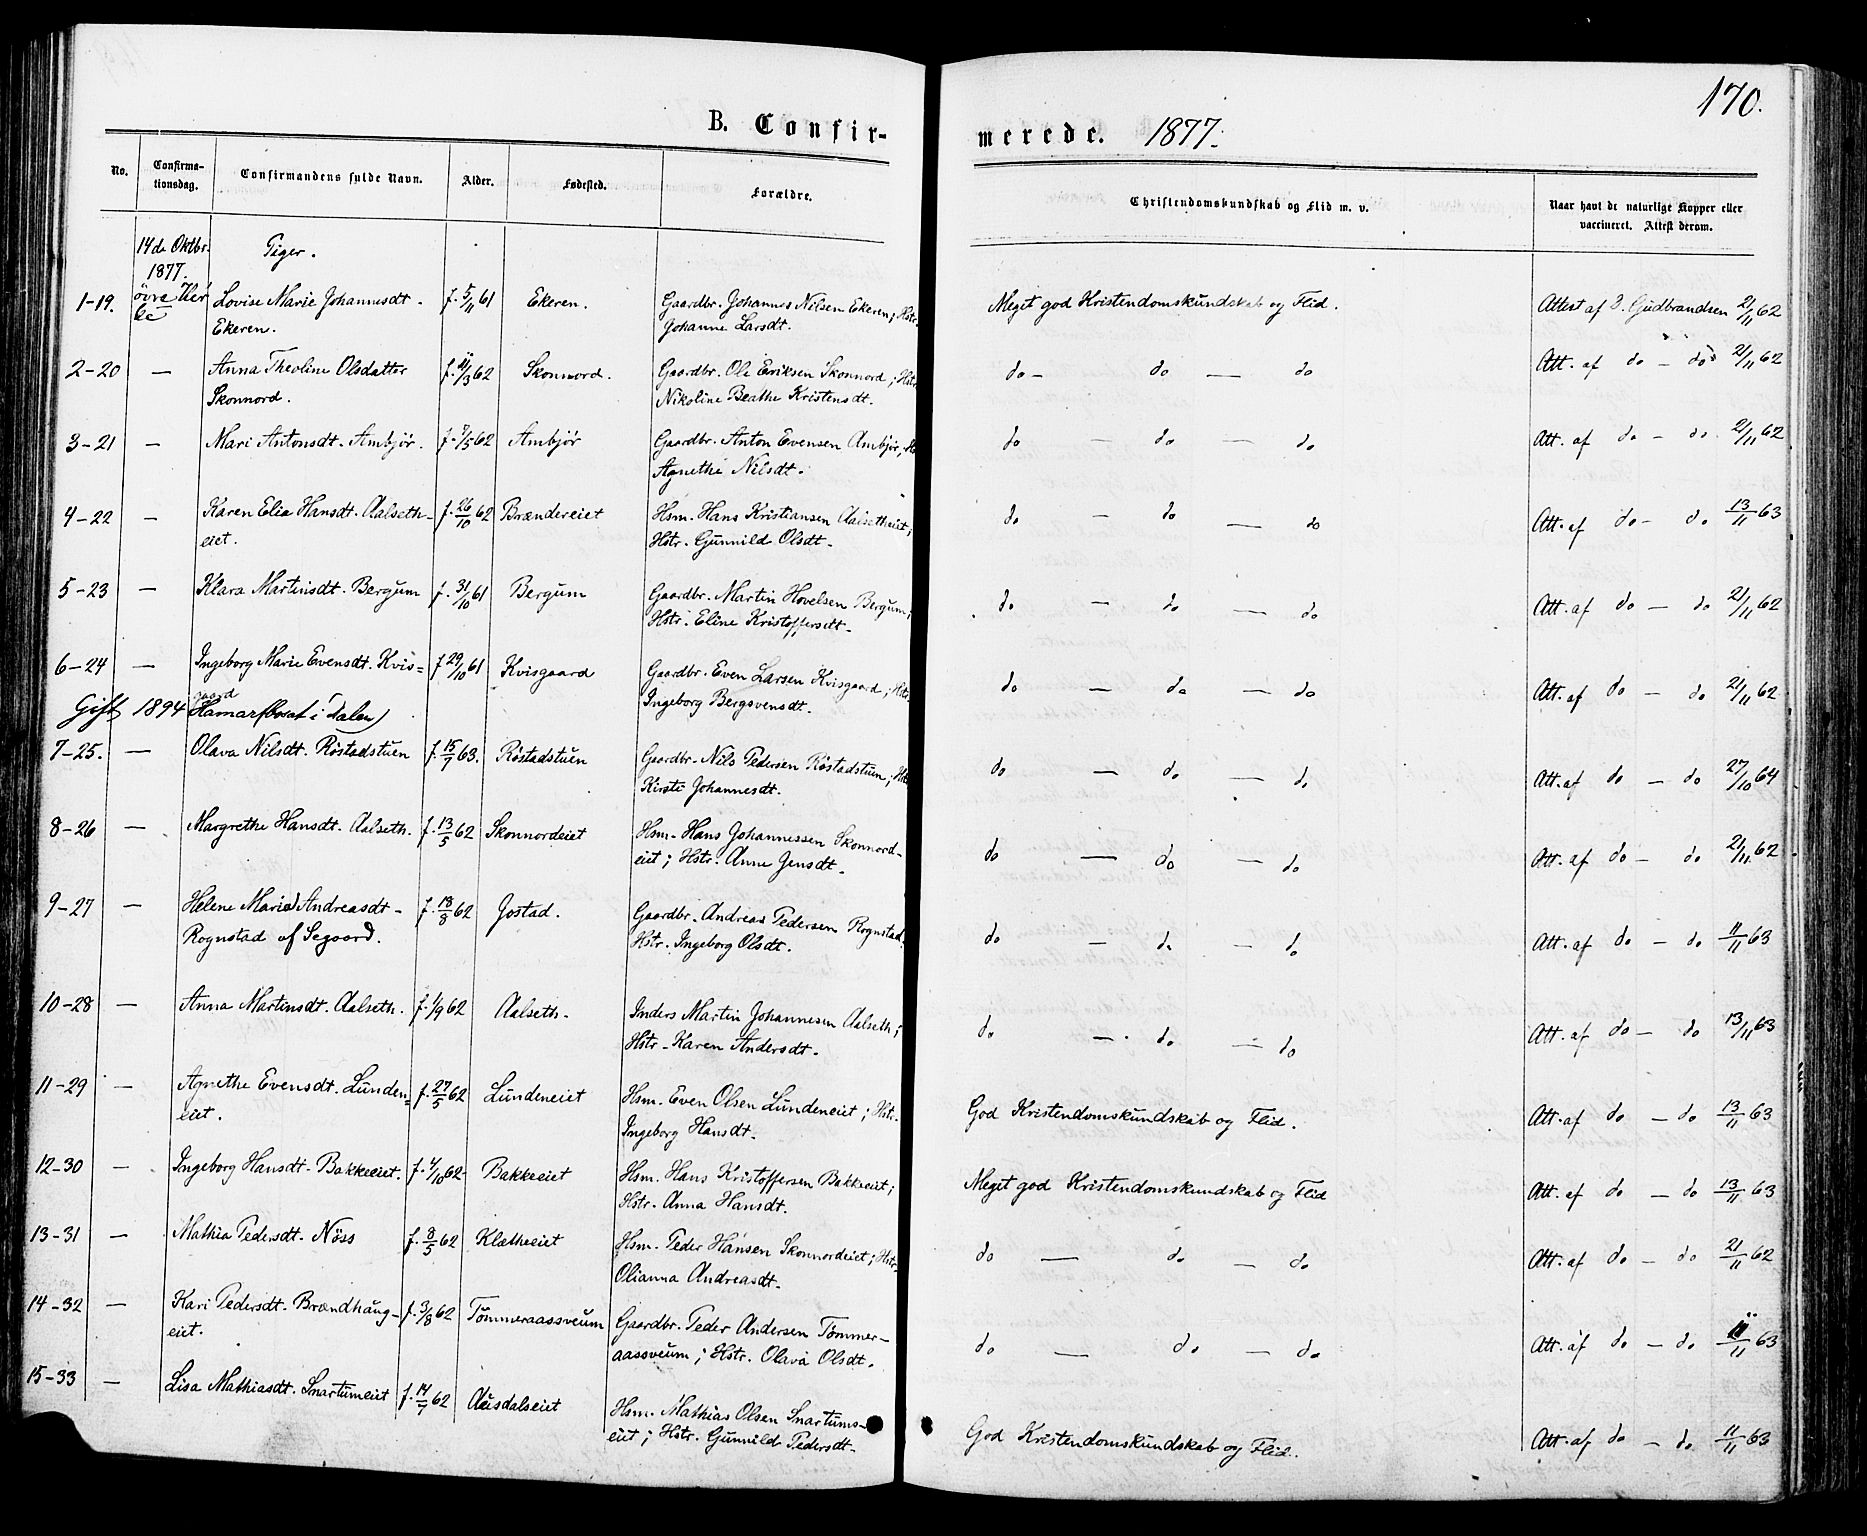 170.
B. Confir-
merede. 1877.
No.
Confirma-
tionsdag.
Confirmandens fulde Navn.
Alder.
Fødested.
Forældre.
Christendomskundskab og Flid m. v.
Naar havt de naturlige Kopper eller
vaccineret. Attest derom.
14de Oktbr. Piger.
1877.
1-19. Lovise Marie Johannesdt. f. 5/11 61 Ekeren. Gaardbr. Johannes Nilsen Ekeren; Hstr. Meget god Kristendomskundskab og Flid. Attest af J. Gudbrandsen 21/11 62
Ekeren. Johanne Larsdt.
2-20 — Anna Theoline Olsdatter f. 11/3 62 Skonnord. Gaardbr. Ole Eriksen Skonnord; Hstr. do — do — do Att. af do — do 21/11 62
Skonnord. Nikoline Beathe Kristensdt.
3-21 — Mari Antonsdt. Ambjør. f. 7/5 62 Ambjør Gaardbr. Anton Evensen Ambjør, do — do — do Att. af do — do. 21/11 62
Agnethe Nilsdt.
4-22 — Karen Elia Hansdt. Aalseth- f. 26/10 62 Brændereiet Hsm. Hans Kristiansen Aalsetheiet; do — do — do Att. af do — do 13/11 63
eiet. Hstr. Gunnild Olsdt.
5-23 — Klara Martinsdt. Bergum f. 31/10 61 Bergum Gaardbr. Martin Hovelsen Bergum; do — do — do Att. af do — do 21/11 62
Hstr. Eline Kristoffersdt.
6-24 — Ingeborg Marie Evensdt. Kvis= f 29/10 61 Kvisgaard Gaardbr. Even Larsen Kvisgaard; Hstr. do — do — do Att. af do — do 21/11 62
gaard Ingeborg Bergsvensdt.
Gift 1894 Hamar (bosat i Dalen)
7-25. — Olava Nilsdt. Röstadstuen f. 15/7 63. Röstadstuen Gaardbr. Nils Pedersen Röstadstuen; Hstr do — do — do Att. af do — do 27/10 64
Kirsti Johannesdt.
8-26 — Margrethe Hansdt. Aalseth. f. 13/5 62 Skonnordeiet Hsm. Hans Johannessen Skonnord- do — do — do Att. af do — do 21/11 62
eiet; Hstr. Anne Jensdt.
9-27 — Helene Marie Andreasdt- f. 18/8 62 Jostad. Gaardbr. Andreas Pedersen Rognstad. do — do — do Att. af do — do 11/11 63
Rognstad af Segaard. Hstr. Ingeborg Olsdt.
10-28 — Anna Martinsdt. Aalseth. f. 1/9 62 Aalseth. Inders Martin Johannesen Aalseth; do — do — do Att. af do — do 13/11 63
Hstr. Karen Andersdt.
11-29 — Agnethe Evensdt. Lunden= f. 27/5 62 Lundeneiet Hsm. Even Olsen Lundeneiet; Hstr. God Kristendomskundskab og Flid. Att. af do — do 13/11 63
eiet. Ingeborg Hansdt.
12-30 — Ingeborg Hansdt. Bakkeeiet. f. 4/10 62 Bakkeeiet Hsm. Hans Kristoffersen Bakkeeiet; Meget god Kristendomskundskab og Flid Att. af do — do 13/11 63
Hstr. Anna Hansdt.
13-31 — Mathia Pedersdt. Nöss f. 8/5 62 Klætheeiet Hsm. Peder Hansen Skonnordeiet; Hstr. do — do — do Att. af do — do 21/11 62
Olianna Andreasdt.
14-32 — Kari Pedersdt. Brændhaug- f. 3/8 62 Tömmeraassveum Gaardbr. Peder Andersen Tömmer- do — do — do Att. af do — do 11/11 63
eiet. aassveum; Hstr. Olava Olsdt.
15-33 — Lisa Mathiasdt. Snartumeiet f. 14/7 62 Ausdalseiet Hsm. Mathias Olsen Snartums- God Kristendomskundskab og Flid. Att. af do — do 11/11 63
eiet; Hstr. Gunnild Pedersdt.